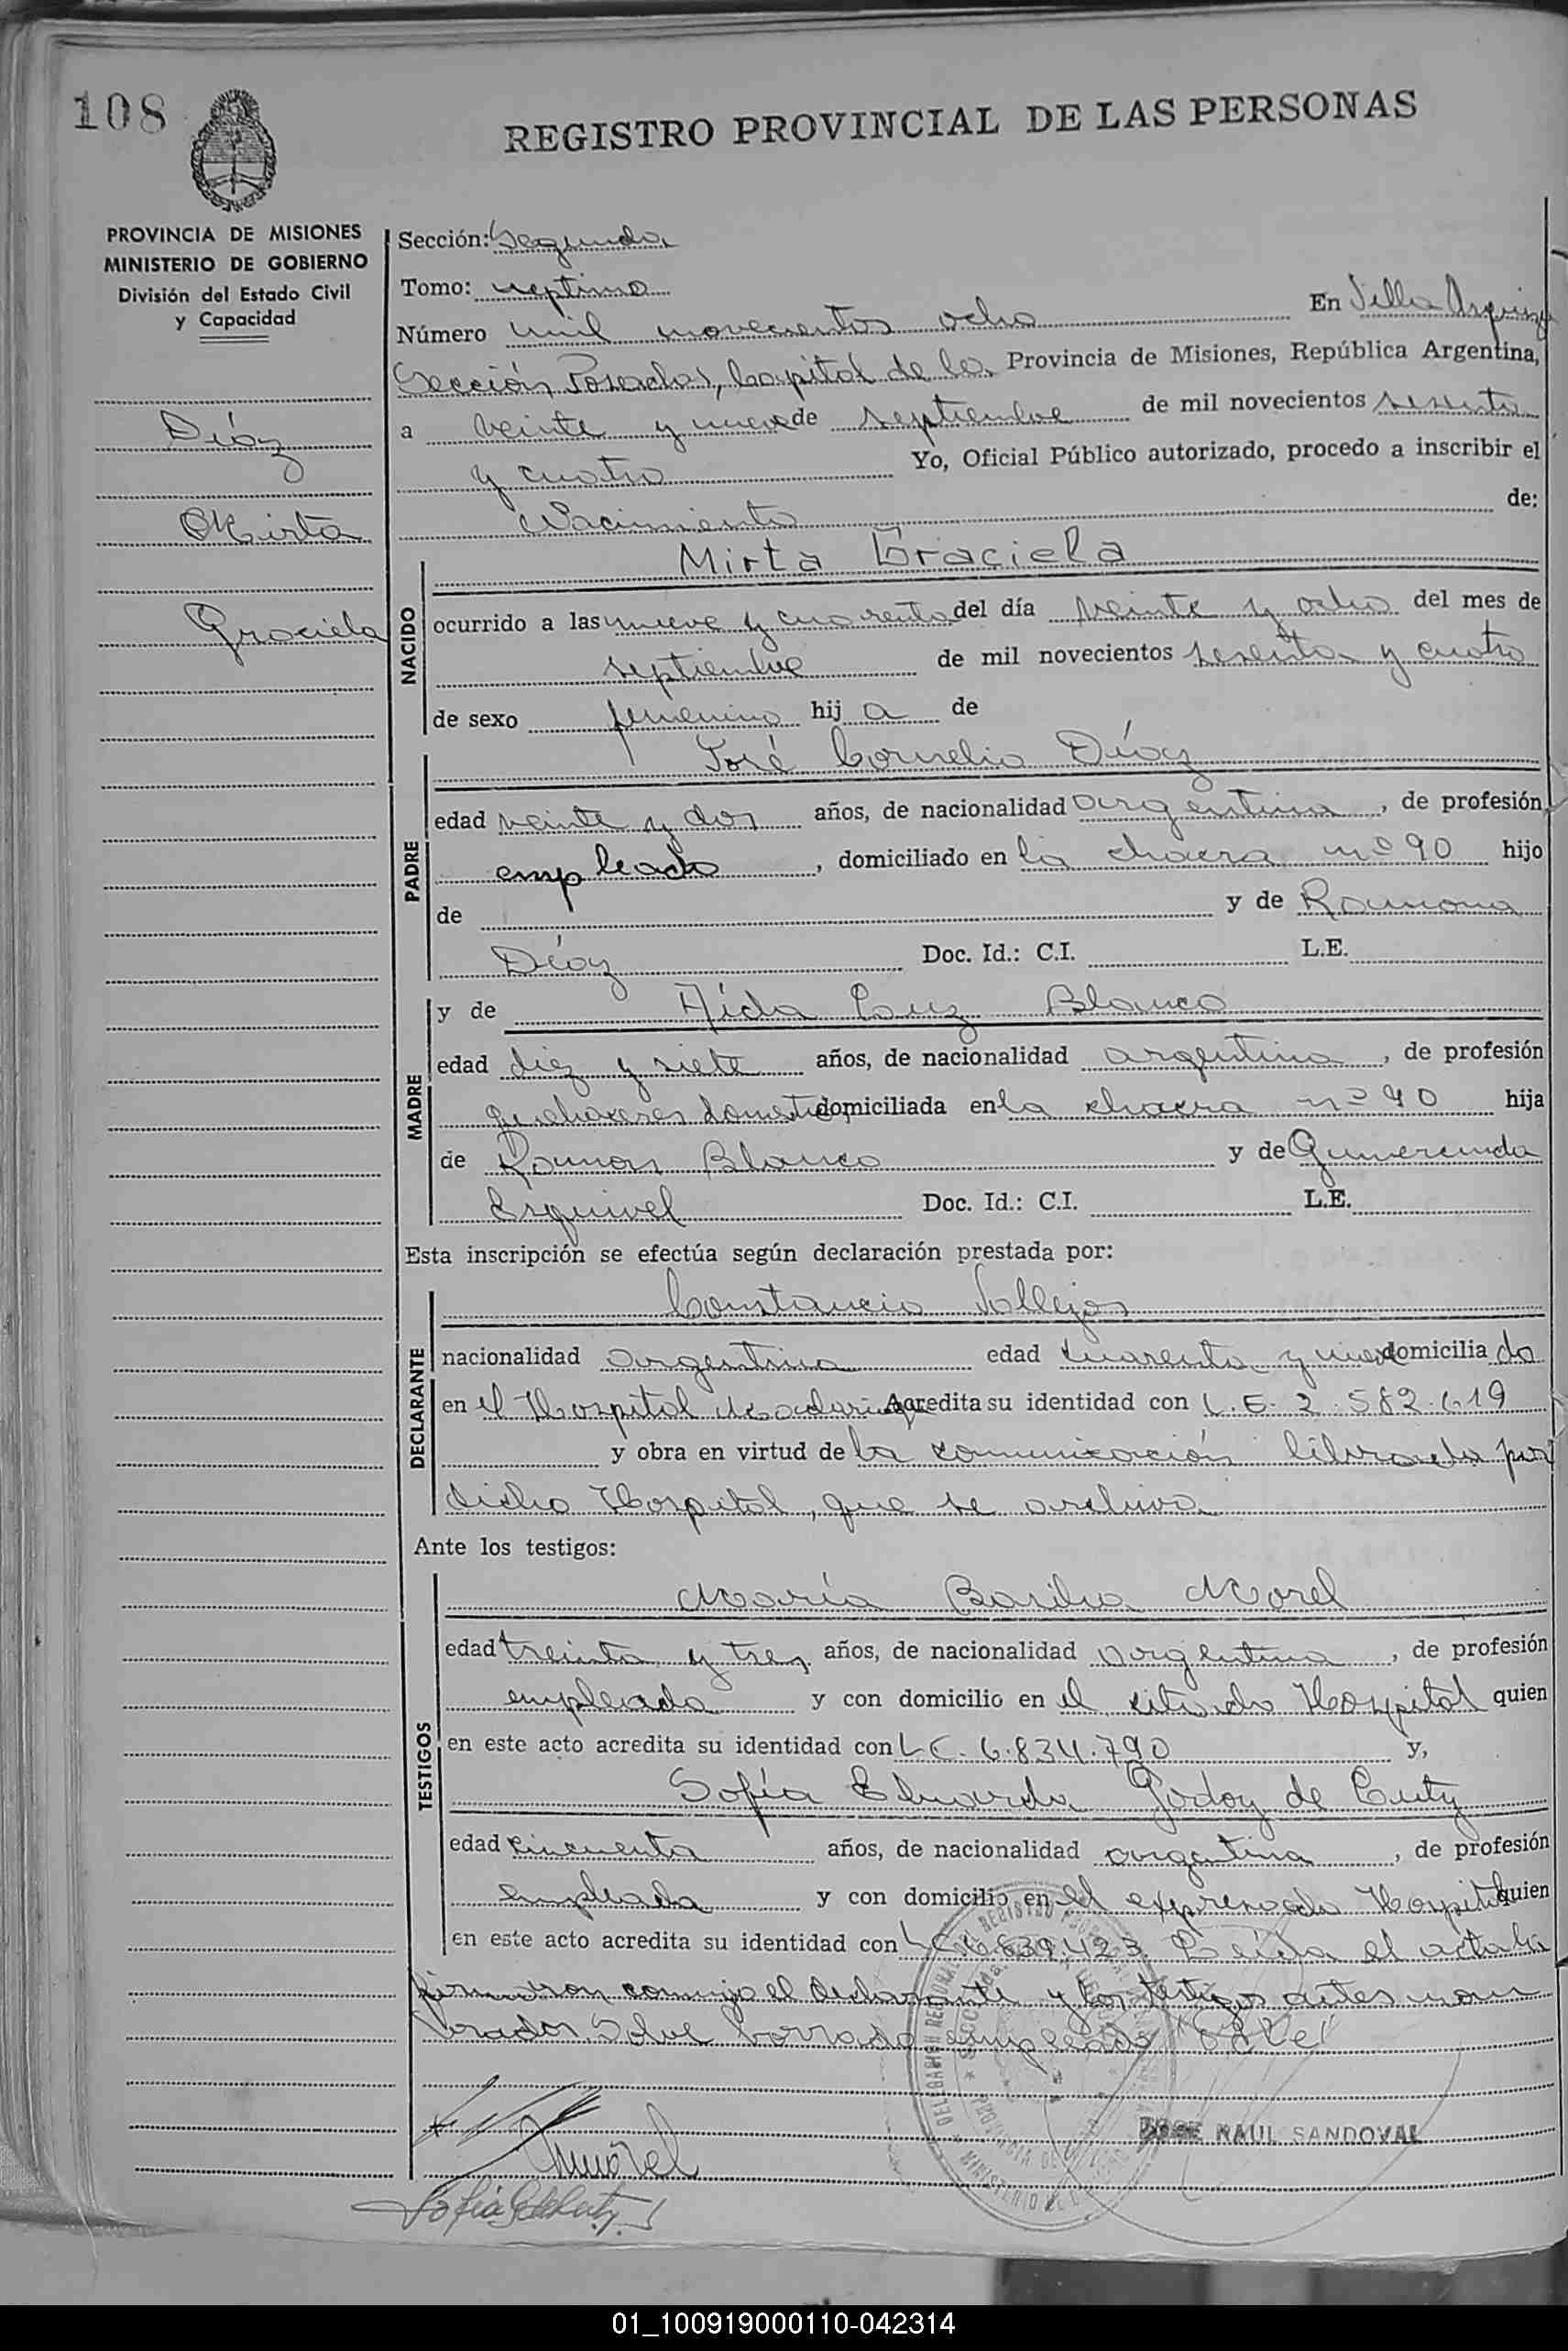 108
REGISTRO PROVINCIAL DE LAS PERSONAS
PROVINCIA DE MISIONES
MINISTERIO DE GOBIERNO
División del Estado Civil
y Capacidad
Díaz
Mirta
Graciela
Sección: Segunda
Tomo: septimo
Número mil novecientos ocho En Villa Urquiza
Sección, Posadas, Capital de la Provincia de Misiones, República Argentina,
a veinte y nueve de septiembre de mil novecientos sesenta
y cuatro Yo, Oficial Público autorizado, procedo a inscribir el
Nacimiento de:
NACIDO
Mirta Graciela
ocurrido a las nueve y cuarenta del día veinte y ocho del mes de
septiembre de mil novecientos sesenta y cuatro
de sexo femenino hij a de
PADRE
José Cornelio Díaz
edad veinte y dos años, de nacionalidad argentina, de profesión
empleado, domiciliado en la chacra nº 90 hijo
de y de Ramona
Díaz Doc. Id.: C.I. L.E.
MADRE
y de Aida Luz Blanco
edad diez y siete años, de nacionalidad argentina, de profesión
quehaceres domiciliada en la chacra nº 90 hija
de Ramon Blanco y de Gumercinda
Esquivel Doc. Id.: C.I. L.E.
Esta inscripción se efectúa según declaración prestada por:
DECLARANTE
Constancio Vallejos
nacionalidad argentina edad cuarenta y nueve domicilia do
en el Hospital Madariaga Acredita su identidad con L.E. 2.582.619
y obra en virtud de la comunicación librada por
dicho Hospital, que se archiva
Ante los testigos:
TESTIGOS
María Basilia Morel
edad treinta y tres años, de nacionalidad argentina, de profesión
empleada y con domicilio en el citado Hospital quien
en este acto acredita su identidad con L.C. 6.834.790 y,
Sofía Eduarda Godoy de Cuty
edad cincuenta años, de nacionalidad argentina, de profesión
empleada y con domicilio en el expresado Hospital quien
en este acto acredita su identidad con L.C. 6.839.423. Leída el acta la
firmaron conmigo el declarante y los testigos antes nom
brados. Salve borrado empleado Vale
Morel
JOSE RAUL SANDOVAL
01_100919000110-042314